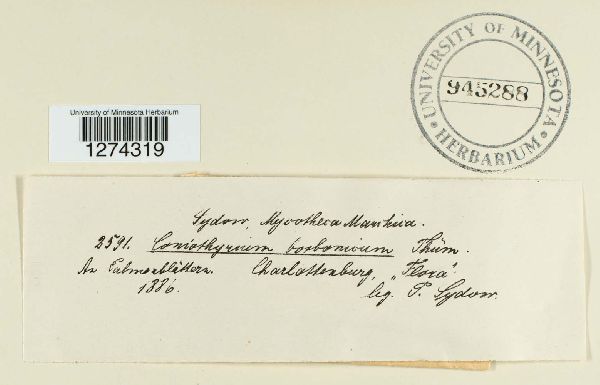 UNIVERSITY OF MINNESOTA
945288
HERBARIUM
University of Minnesota Herbarium
1274319
Sydow, Mycotheca Marchica.
2591. Coniothyrium borbonicum Thüm.
An Palmenblättern. Charlottenburg, „Flora“.
1886. leg. P. Sydow.